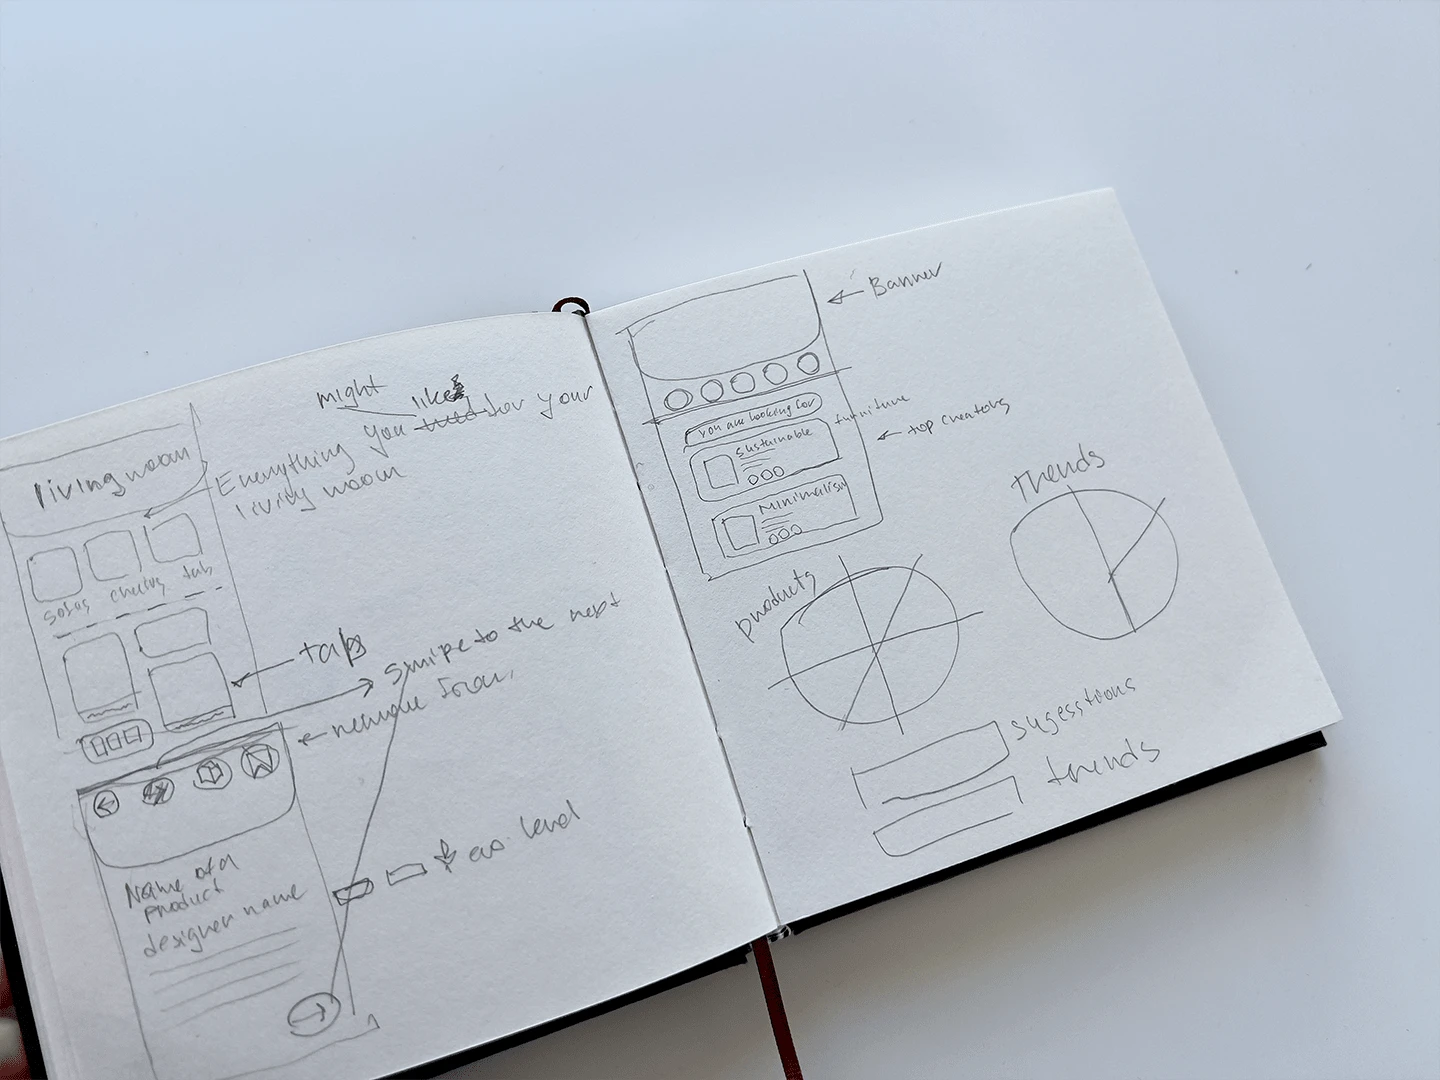 might
like
Everything you need for your
living room
living room
sofas chairs tab
tabs
swipe to the next
remove from
Name of a
product
designer name
eco. level
Banner
you are looking for
furniture
Sustainable
top creators
Minimalism
Trends
products
sugesstions
trends